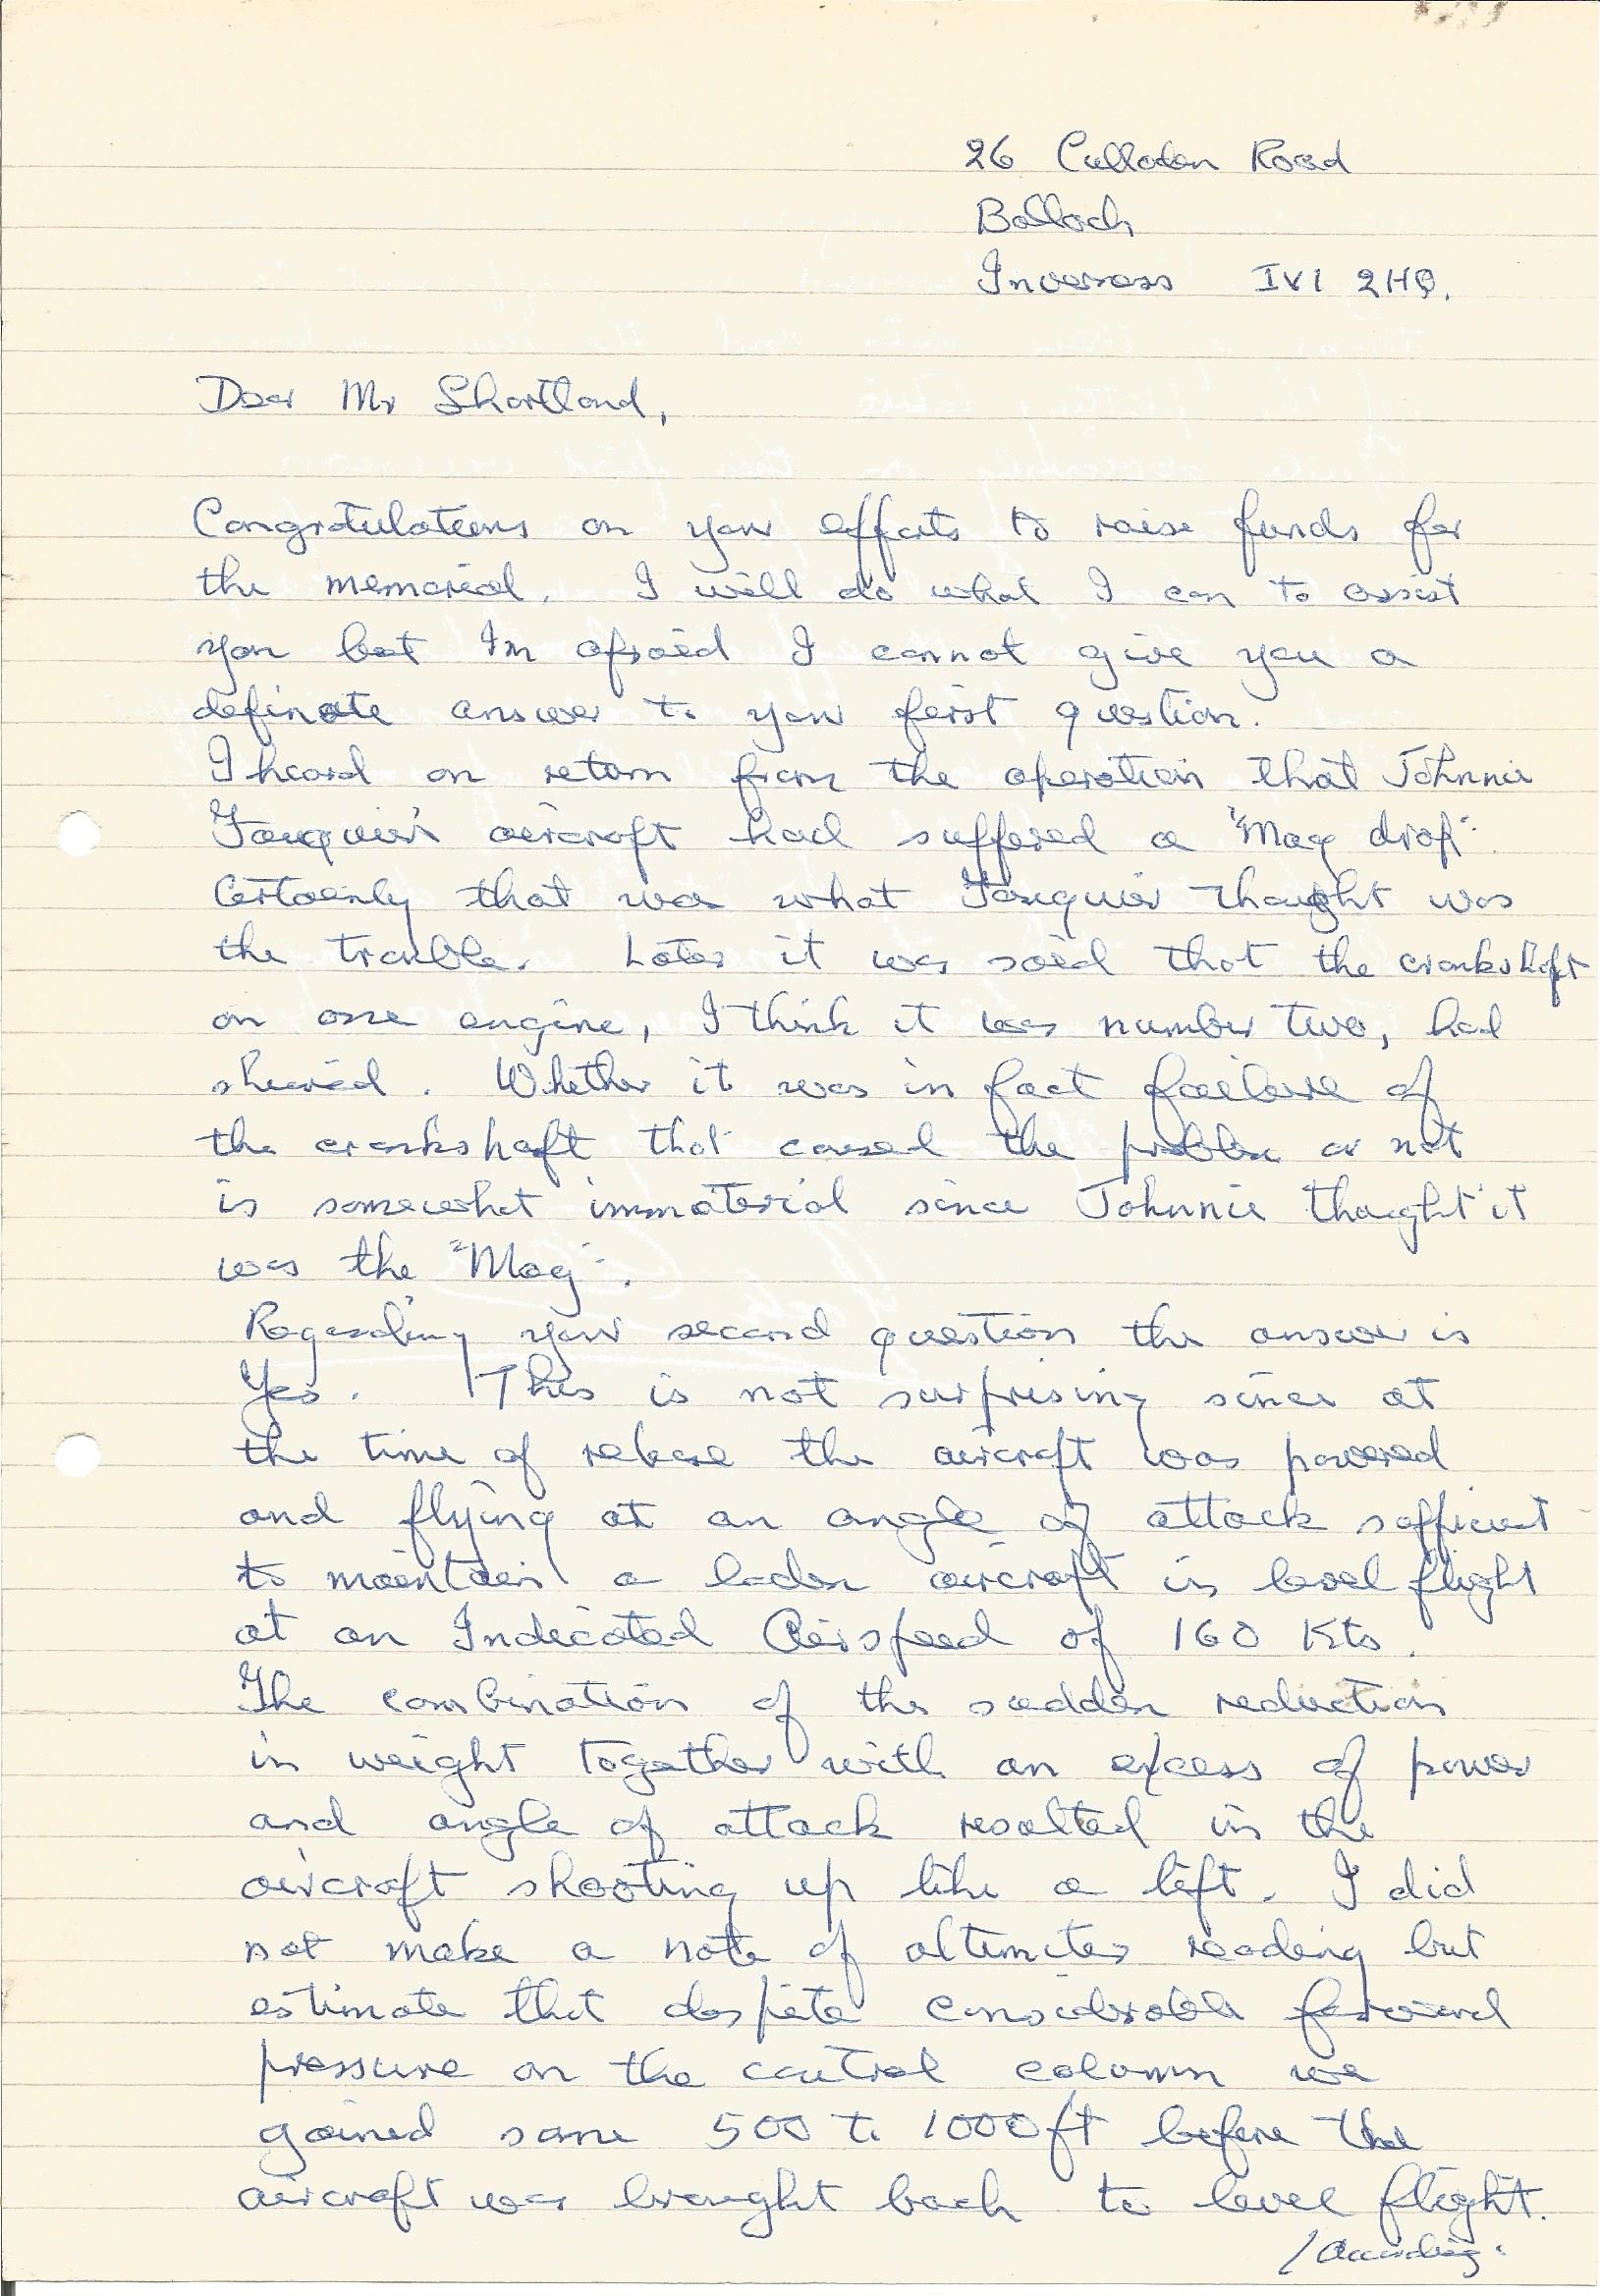 26 Culloden Road
Balloch
Inverness IV1 2HQ.
Dear Mr Shortland,
Congratulations on your efforts to raise funds for
the memorial. I will do what I can to assist
you but I'm afraid I cannot give you a
definate answer to your first question.
I heard on return from the operation that Johnnie
Fauquier's aircraft had suffered a "Mag drop".
Certainly that was what Fauquier thought was
the trouble. Later it was said that the crankshaft
on one engine, I think it was number two, had
sheared. Whether it was in fact failure of
the crankshaft that caused the problem or not
is somewhat immaterial since Johnnie thought it
was the "Mag".
Regarding your second question the answer is
Yes. This is not surprising since at
the time of release the aircraft was powered
and flying at an angle of attack sufficient
to maintain a laden aircraft in level flight
at an Indicated Airspeed of 160 Kts.
The combination of the sudden reduction
in weight together with an excess of power
and angle of attack resulted in the
aircraft shooting up like a lift. I did
not make a note of altimeter reading but
estimate that despite considerable forward
pressure on the control column we
gained some 500 to 1000ft before the
aircraft was brought back to level flight.
/According.